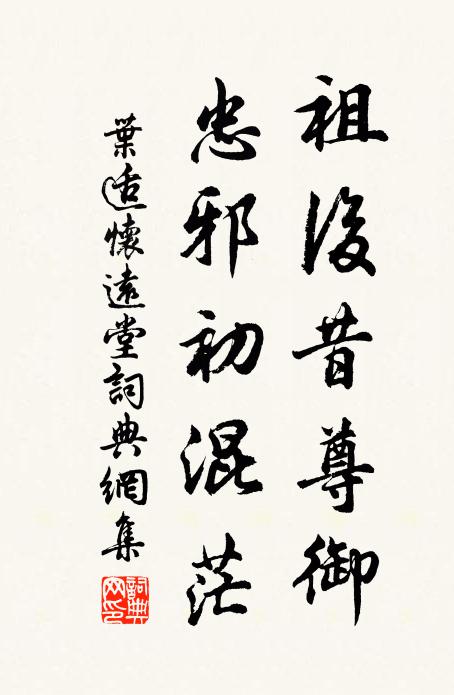 祖後昔尊御
忠邪初混茫
葉适懷遠堂詞典網集
詞典
网印